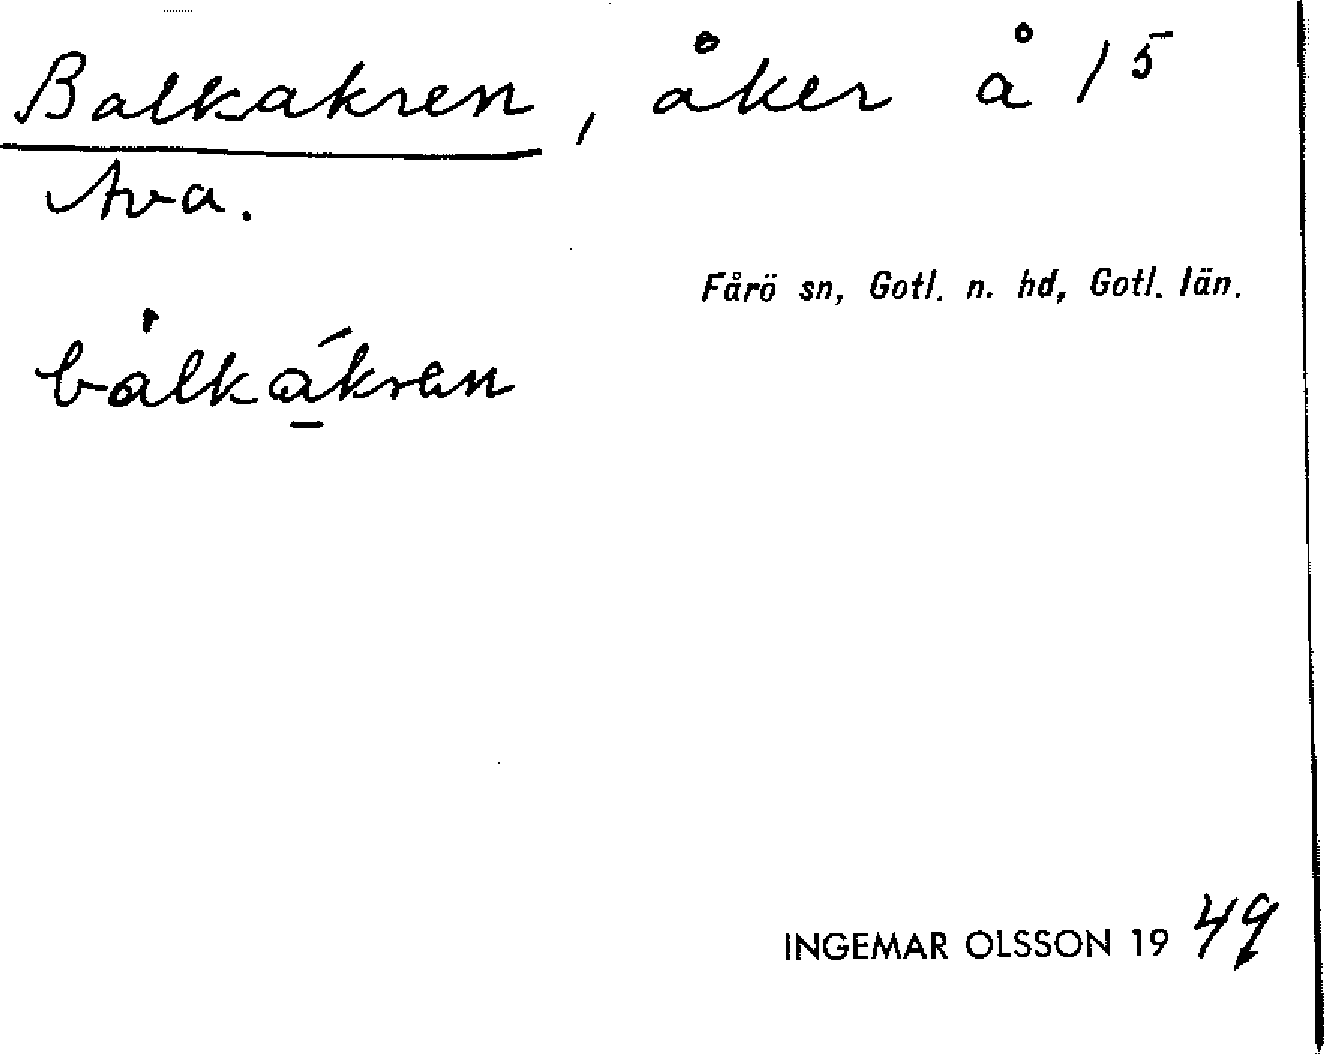 Balkakren, åker å 1⁵
Ava.
Fårö sn, Gotl. n. hd, Gotl. län.
bàlkákren
INGEMAR OLSSON 1949